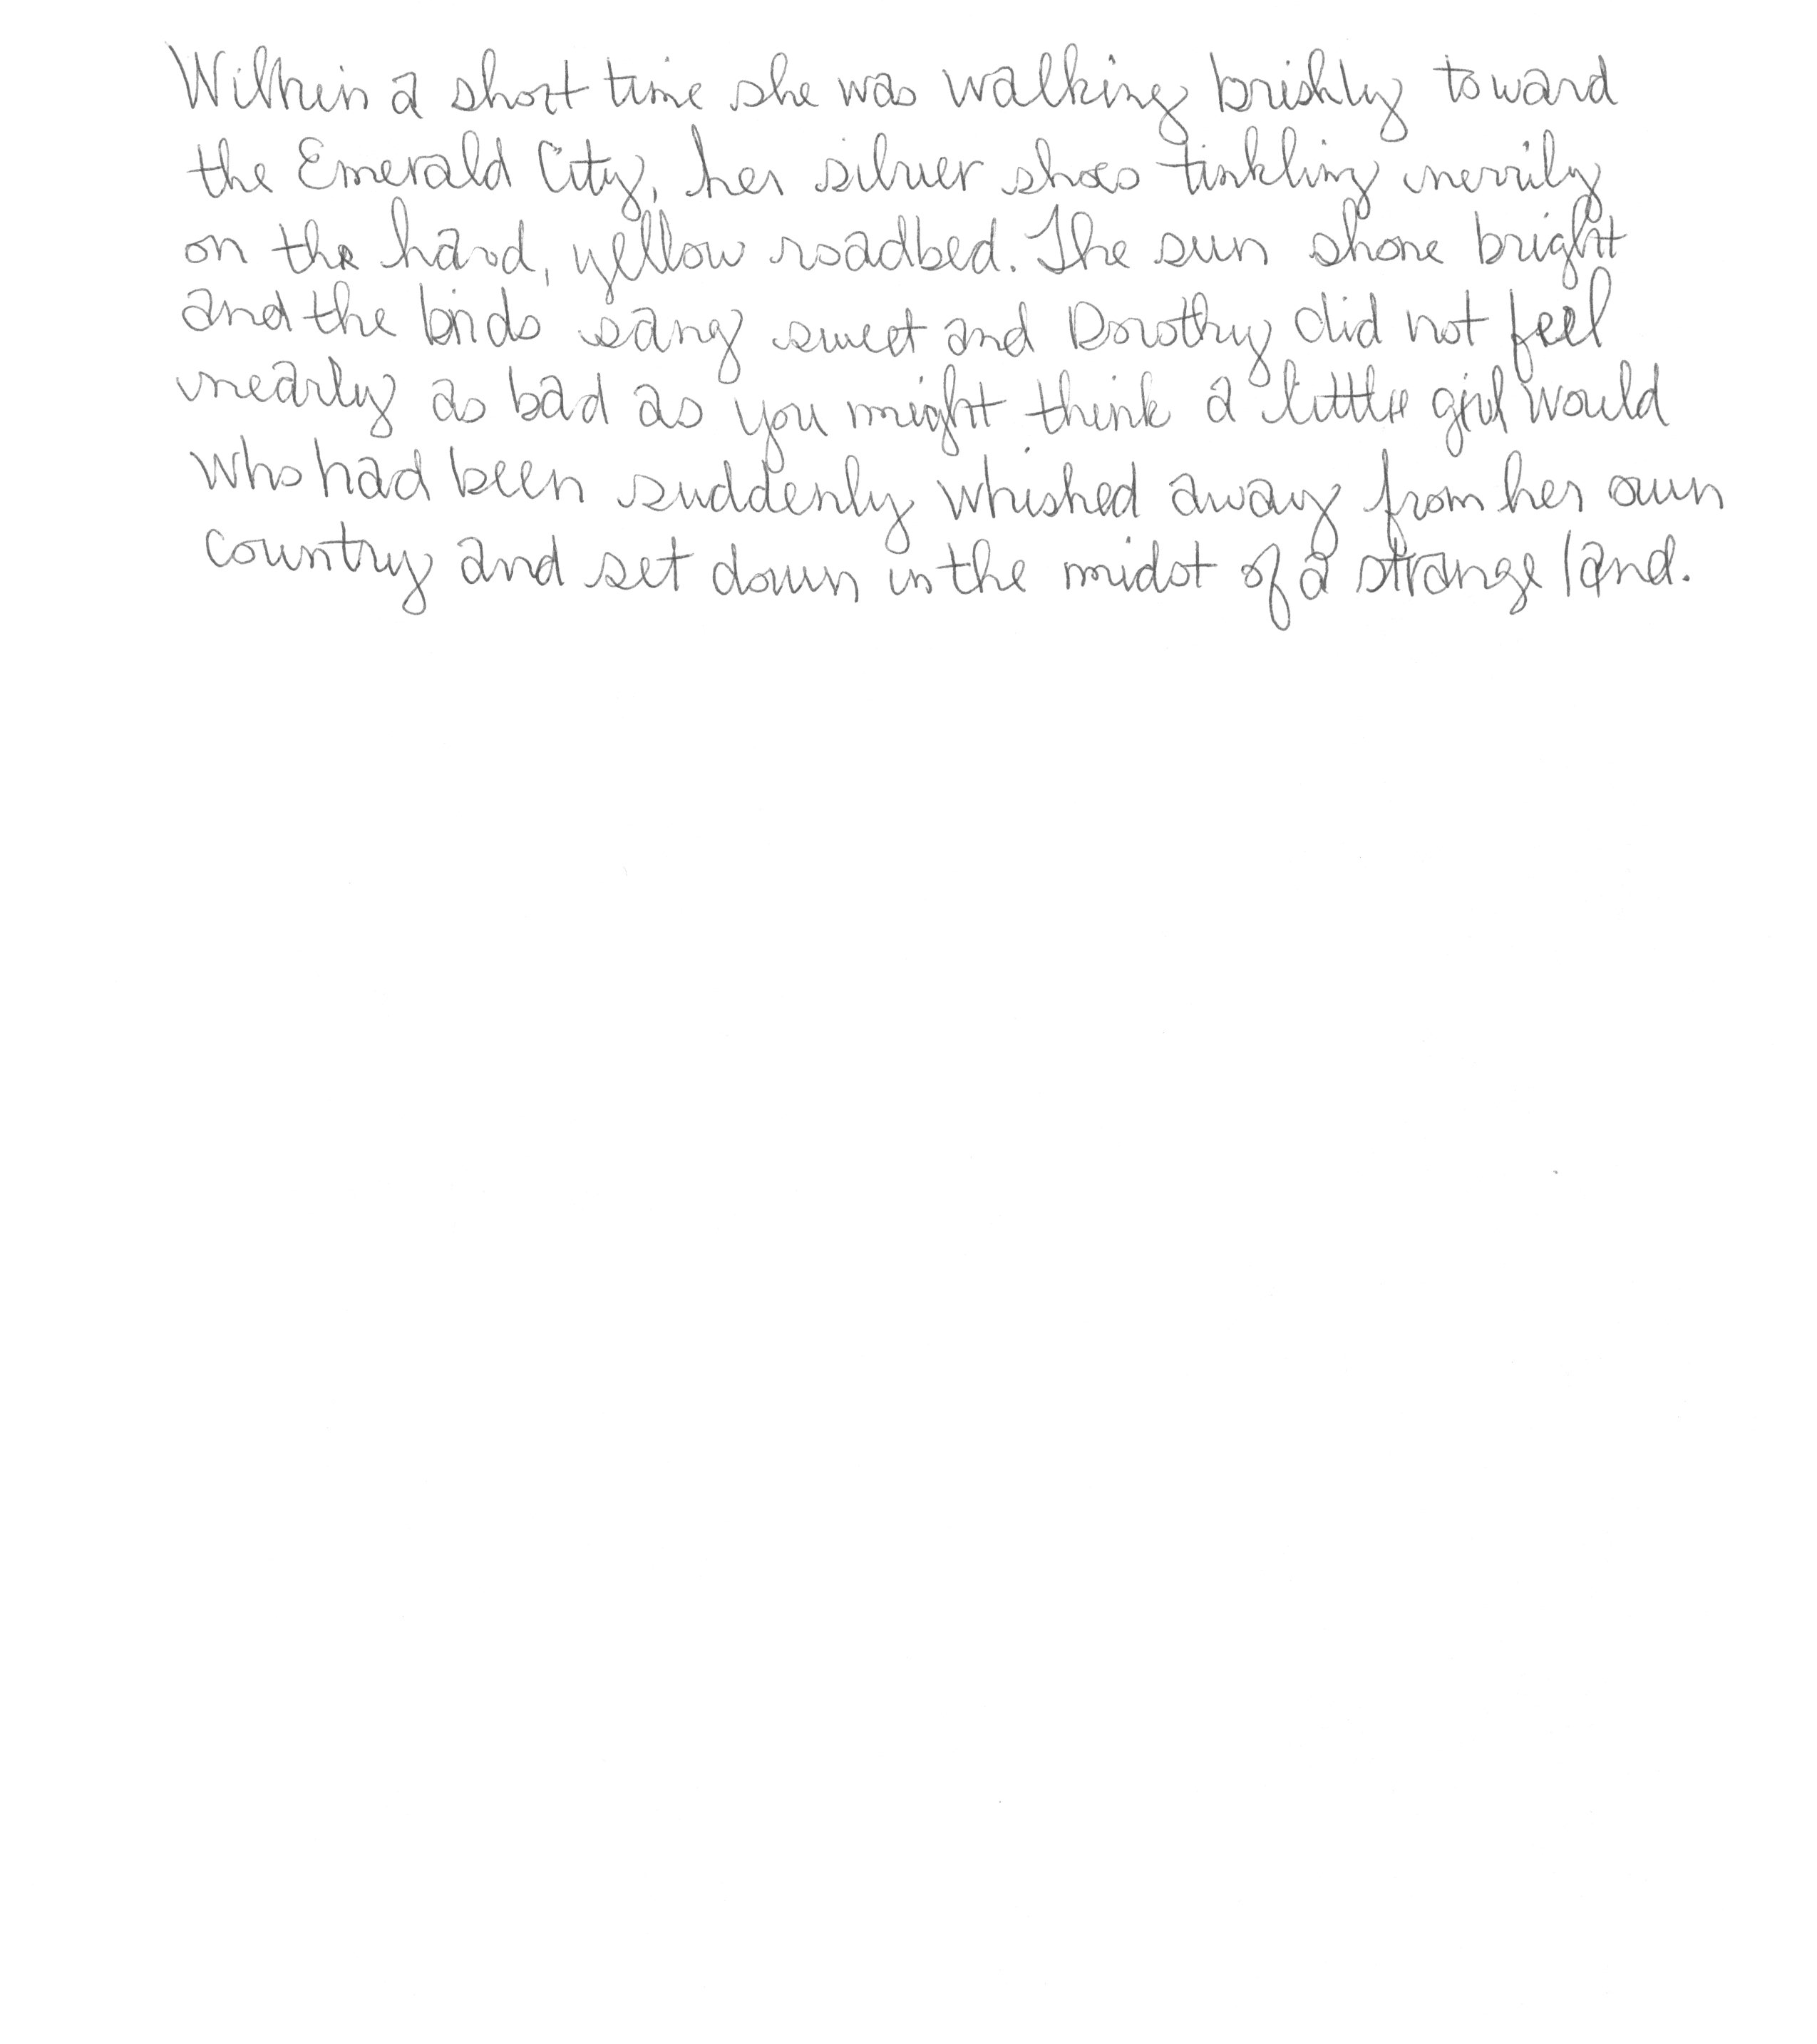 Within a short time she was walking briskly toward
the Emerald City, her silver shoes tinkling merrily
on the hard, yellow roadbed. The sun shone bright
and the birds sang sweet and Dorothy did not feel
nearly as bad as you might think a little girl would
who had been suddenly whished away from her own
country and set down in the midst of a strange land.